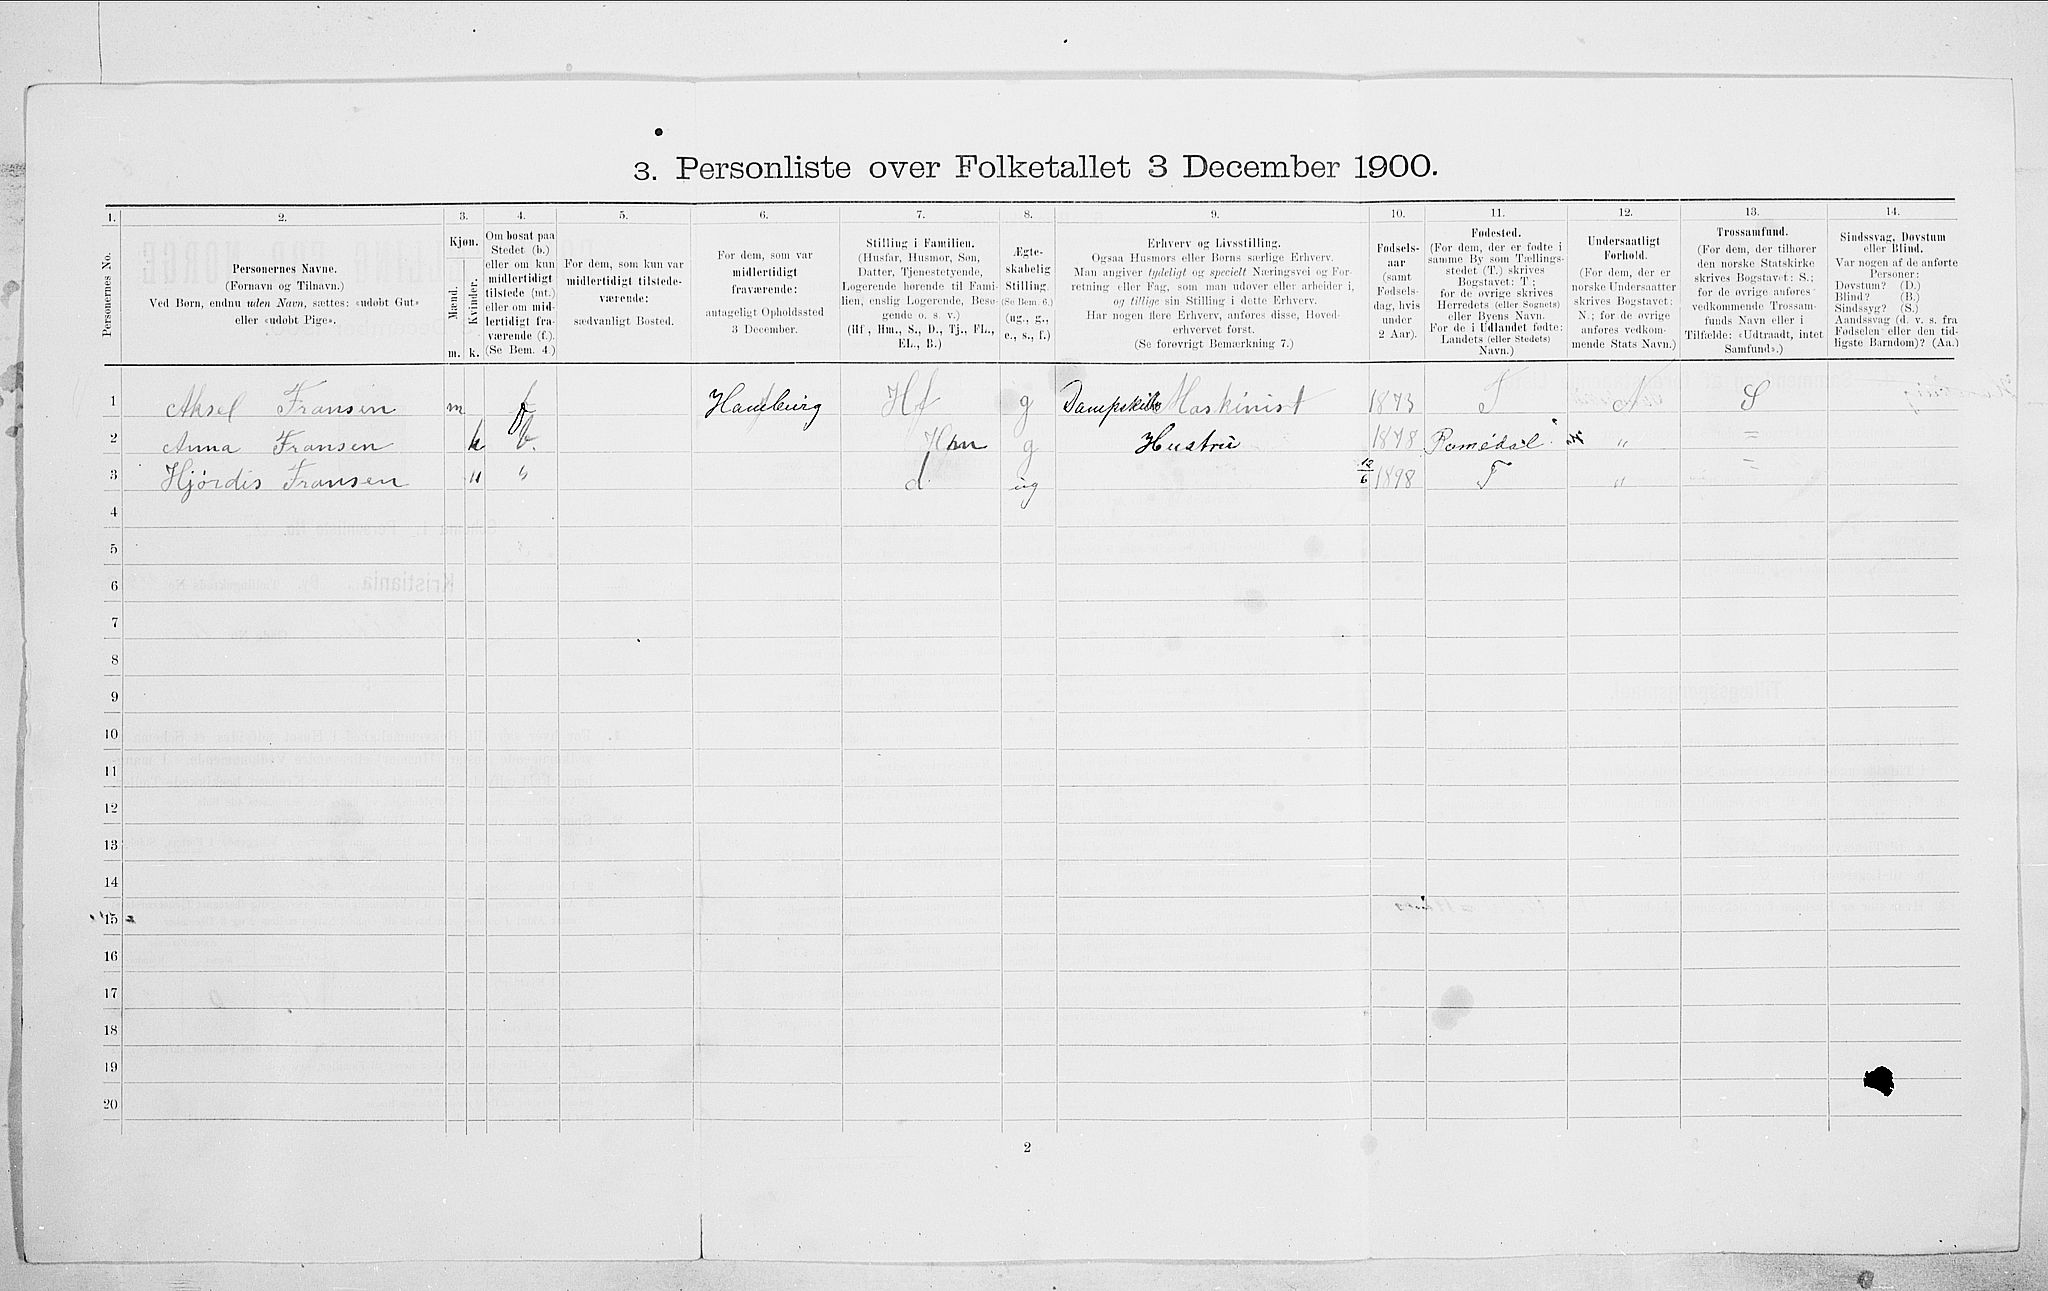 3. Personliste over Folketallet 3 December 1900.
1. 2. 3. 4. 5. 6. 7. 8. 9. 10. 11. 12. 13. 14.
Personernes No.
Personernes Navne.
(Fornavn og Tilnavn.)
Ved Børn, endnu uden Navn, sættes: «udøbt Gut»
eller «udøbt Pige».
Kjøn.
Mænd.
Kvinder.
m. k.
Om bosat paa
Stedet (b.)
eller om kun
midlertidigt
tilstede (mt.)
eller om mid-
lertidigt fra-
værende (f.).
(Se Bem. 4.)
For dem, som kun var
midlertidigt tilstede-
værende:
sædvanligt Bosted.
For dem, som var
midlertidigt
fraværende:
antageligt Opholdssted
3 December.
Stilling i Familien.
(Husfar, Husmor, Søn,
Datter, Tjenestetyende,
Logerende hørende til Fami-
lien, enslig Logerende, Besø-
gende o. s. v.)
(Hf., Hm., S., D., Tj., FL.,
EL., B.)
Ægte-
skabelig
Stilling.
(Se Bem. 6.)
(ug., g.,
e., s., f.)
Erhverv og Livsstilling.
Ogsaa Husmors eller Børns særlige Erhverv.
Man angiver tydeligt og specielt Næringsvei og For-
retning eller Fag, som man udøver eller arbeider i,
og tillige sin Stilling i dette Erhverv.
Har nogen flere Erhverv, anføres disse, Hoved-
erhvervet først.
(Se forøvrigt Bemærkning 7.)
Fødsels-
aar
(samt
Fødsels-
dag, hvis
under
2 Aar).
Fødested.
(For dem, der er fødte i
samme By som Tællings-
stedet (T.) skrives
Bogstavet: T;
for de øvrige skrives
Herredets (eller Sognets)
eller Byens Navn.
For de i Udlandet fødte:
Landets (eller Stedets)
Navn.)
Undersaatligt
Forhold.
(For dem, der er
norske Undersaatter
skrives Bogstavet:
N.; for de øvrige
anføres vedkom-
mende Stats Navn.)
Trossamfund.
(For dem, der tilhører
den norske Statskirke
skrives Bogstavet: S.;
for de øvrige anføres
vedkommende Trossam-
funds Navn eller i
Tilfælde: «Udtraadt, intet
Samfund».)
Sindssvag, Døvstum
eller Blind.
Var nogen af de anførte
Personer:
Døvstum? (D.)
Blind? (B.)
Sindssyg? (S.)
Aandssvag (d. v. s. fra
Fødselen eller den tid-
ligste Barndom)? (Aa.)
1 Aksel Fransen m f Hamburg Hf g Dampskibs Maskinist 1873 T N S
2 Anna Fransen k b. Hm g Hustru 1878 Romedal " =
3 Hjørdis Fransen " " d ug 12/6 1898 T " =
4
5
6
7
8
9
10
11
12
13
14
15
16
17
18
19
20
2